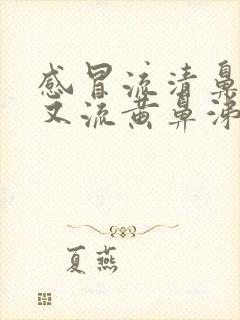 感冒流清鼻
又流黄鼻涕
夏燕